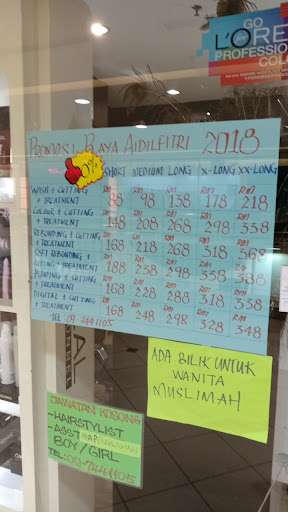 GO
L'ORE
PROFESSION
COLO
PROMOSI RAYA AIDILFITRI 2018
0%
SHORT MEDIUM LONG X-LONG XX-LONG
WASH + CUTTING + TREATMENT RM 88 RM 98 RM 138 RM 178 RM 218
COLOUR + CUTTING + TREATMENT RM 148 RM 208 RM 268 RM 298 RM 338
REBONDING + CUTTING + TREATMENT RM 168 RM 218 RM 268 RM 318 RM 368
SOFT REBONDING + CUTTING + TREATMENT RM 188 RM 238 RM 298 RM 338 RM 388
PERMING + CUTTING + TREATMENT RM 168 RM 228 RM 288 RM 318 RM 338
DIGITAL + CUTTING + TREATMENT RM 168 RM 248 RM 298 RM 328 RM 348
TEL: 09-7441105
ADA BILIK UNTUK
WANITA
MUSLIMAH
JAWATAN KOSONG
-HAIRSTYLIST
-ASST
BOY/GIRL
TEL: 09-7441105